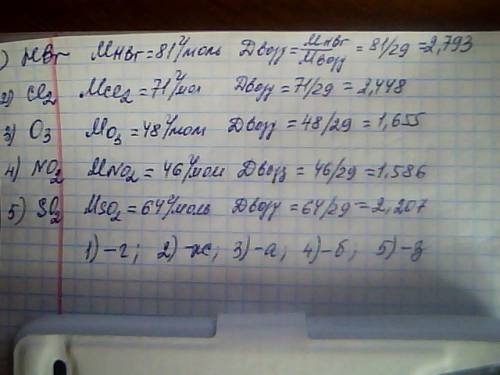 1) HBr MHBr = 81 г/моль Dвозд = MHBr/Mвозд = 81/29 = 2,793
2) Cl2 MCl2 = 71 г/мол Dвозд = 71/29 = 2,448
3) O3 MO3 = 48 г/мол Dвозд = 48/29 = 1,655
4) NO2 MNO2 = 46 г/мол Dвозд = 46/29 = 1,586
5) SO2 MSO2 = 64 г/моль Dвозд = 64/29 = 2,207
1) – г; 2) – ж; 3) – а; 4) – б; 5) – з